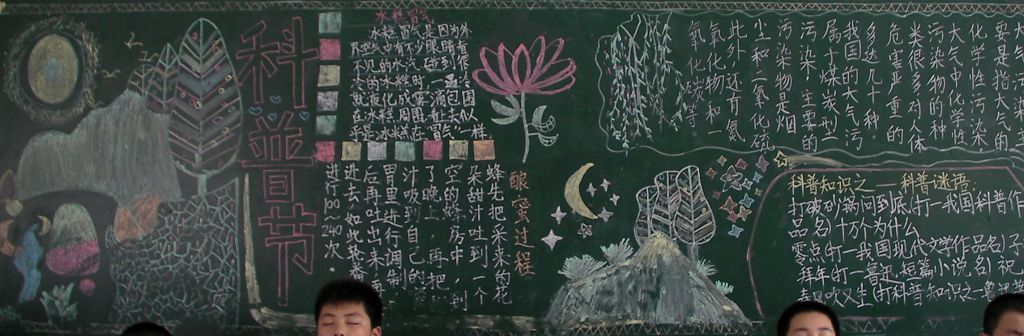 科普节
水棍冒气
冰棍冒气是因为外
界空气中有不少眼睛看
不见的水气,碰到作
冷的冰棍时,一遇
就液化成雾滴包围
在冰棍周围看上去似
乎是冰棍在“冒气”一样
酿蜜过程
蜂先把采来的花
朵甜汁吐到一个
空的蜂房中,到
了晚上,再把
汁吸到自己的
胃里进行调制
后再吐出来,再
进去,如此轮番
进行100~240次
要是指大气的
化学性污染
大气中化学性
污染物的种
类很多对人体
危害严重的
多达几十种
我国的大气污
属于煤炭型
污染,主要的
污染物是烟
尘和二氧化硫
此外,还有氮
氧化物和一
氧化碳等。
科普知识之一——科普谜语:
打破砂锅问到底(打一我国科普作
品名)十万个为什么
零点(打一我国现代文学作品名)子
拜年(打一鲁迅短篇小说名)祝
吹又生(打科普知识之一